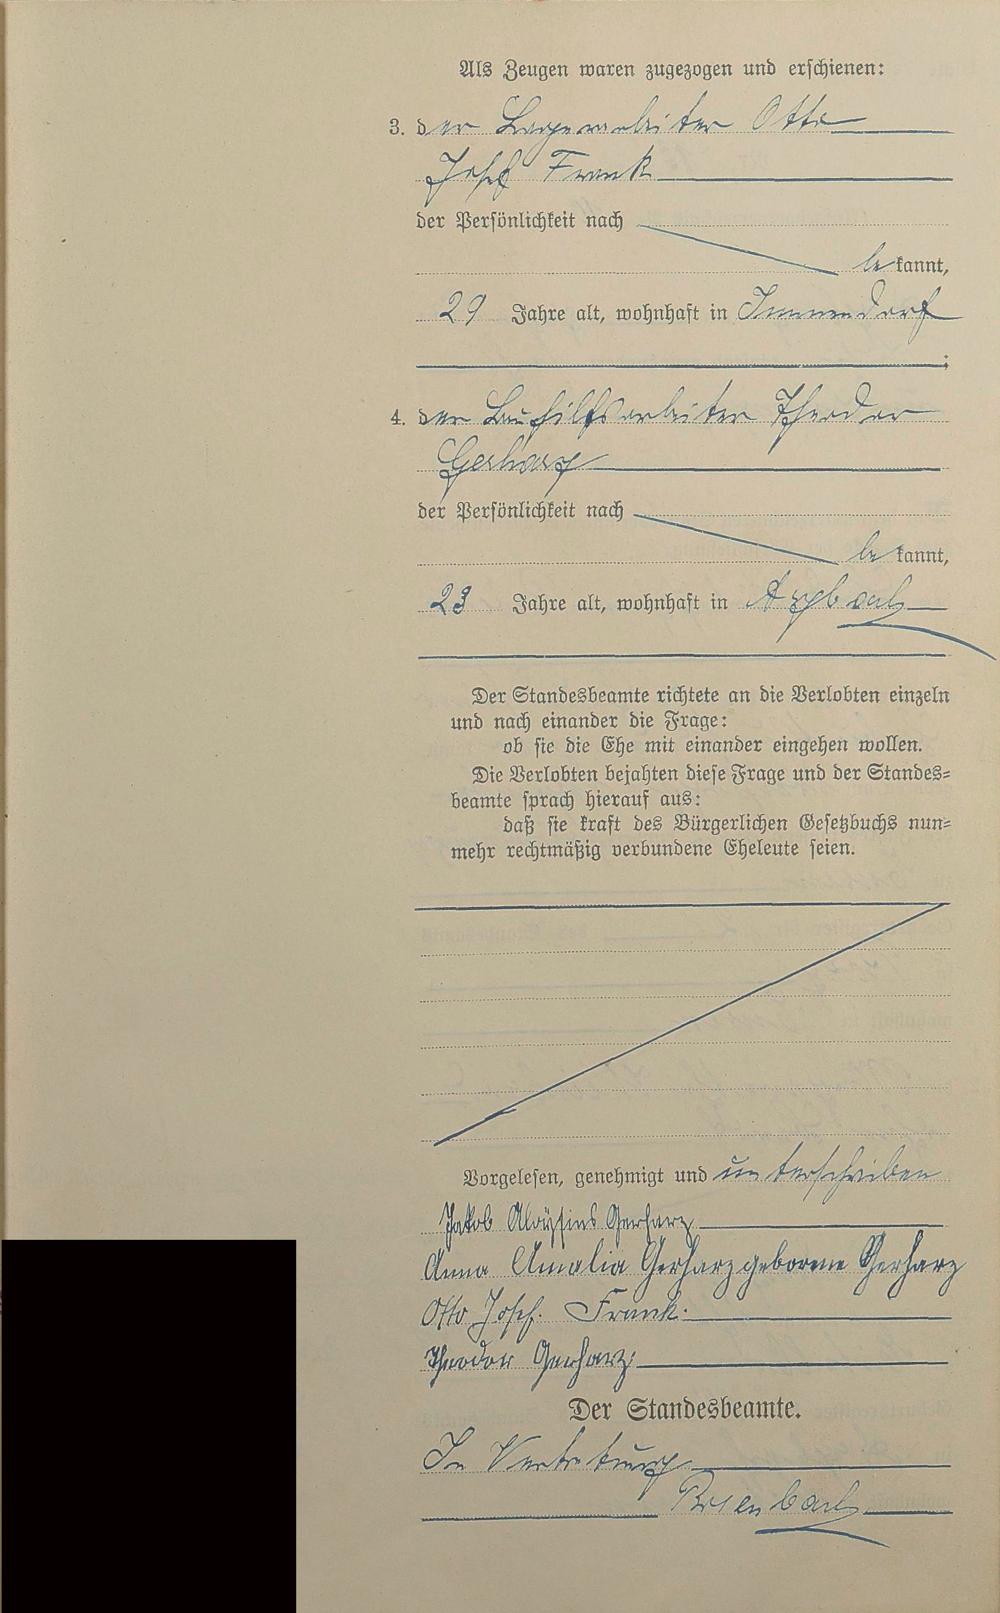 Als Zeugen waren zugezogen und erschienen:
3. der Lagerarbeiter Otto
Josef Frank
der Persönlichkeit nach
bekannt,
29 Jahre alt, wohnhaft in Immendorf
;
4. der Bauhilfsarbeiter Theodor
Gerharz
der Persönlichkeit nach
bekannt,
23 Jahre alt, wohnhaft in Arzbach
Der Standesbeamte richtete an die Verlobten einzeln
und nach einander die Frage:
ob sie die Ehe mit einander eingehen wollen.
Die Verlobten bejahten diese Frage und der Standes-
beamte sprach hierauf aus:
daß sie kraft des Bürgerlichen Gesetzbuchs nun-
mehr rechtmäßig verbundene Eheleute seien.
Vorgelesen, genehmigt und unterschrieben
Jakob Aloysius Gerharz
Anna Amalia Gerharz geborene Gerharz
Otto Josef. Frank.
Theodor Gerharz.
Der Standesbeamte.
In Vertretung